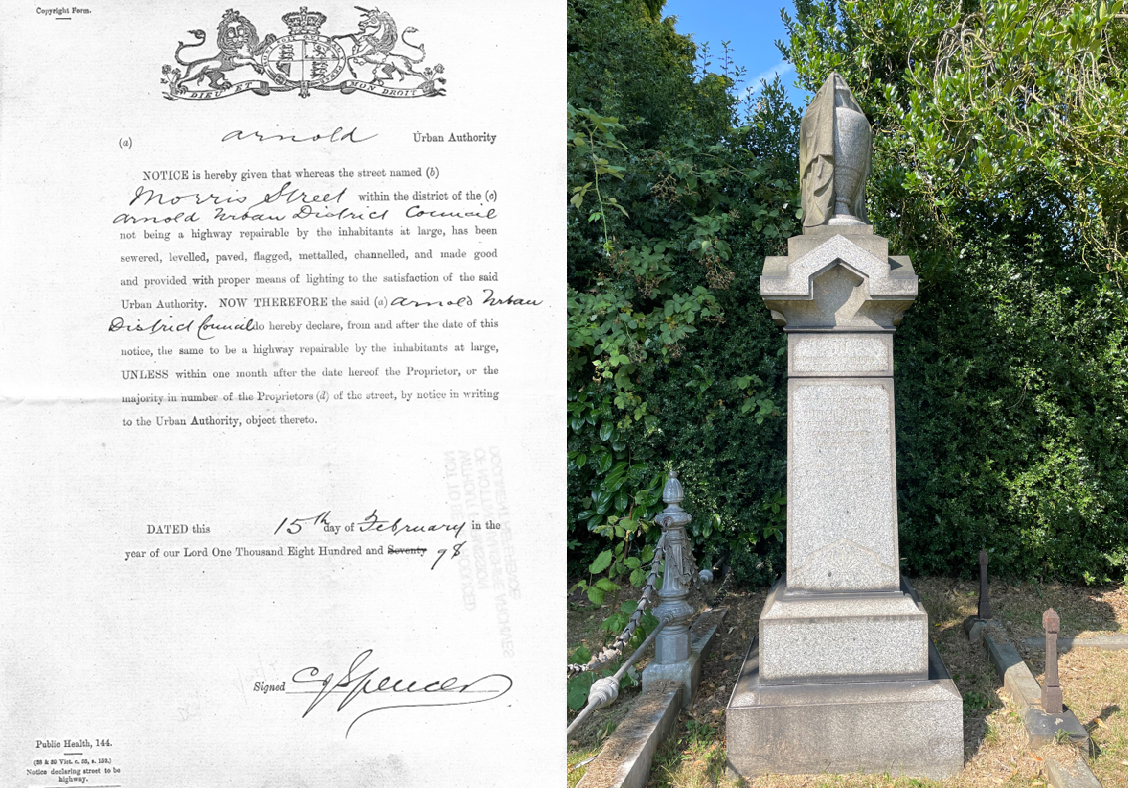 Copyright Form.
DIEU ET MON DROIT
(a) Arnold Urban Authority
NOTICE is hereby given that whereas the street named (b)
Morris Street within the district of the (c)
Arnold Urban District Council
not being a highway repairable by the inhabitants at large, has been
sewered, levelled, paved, flagged, mettalled, channelled, and made good
and provided with proper means of lighting to the satisfaction of the said
Urban Authority. NOW THEREFORE the said (a) Arnold Urban
District Council do hereby declare, from and after the date of this
notice, the same to be a highway repairable by the inhabitants at large,
UNLESS within one month after the date hereof the Proprietor, or the
majority in number of the Proprietors (d) of the street, by notice in writing
to the Urban Authority, object thereto.
DATED this 15th day of February in the
year of our Lord One Thousand Eight Hundred and Seventy 98
Signed Spencer
Public Health, 144.
(38 & 39 Vict. c. 55, s. 152.)
Notice declaring street to be
highway.